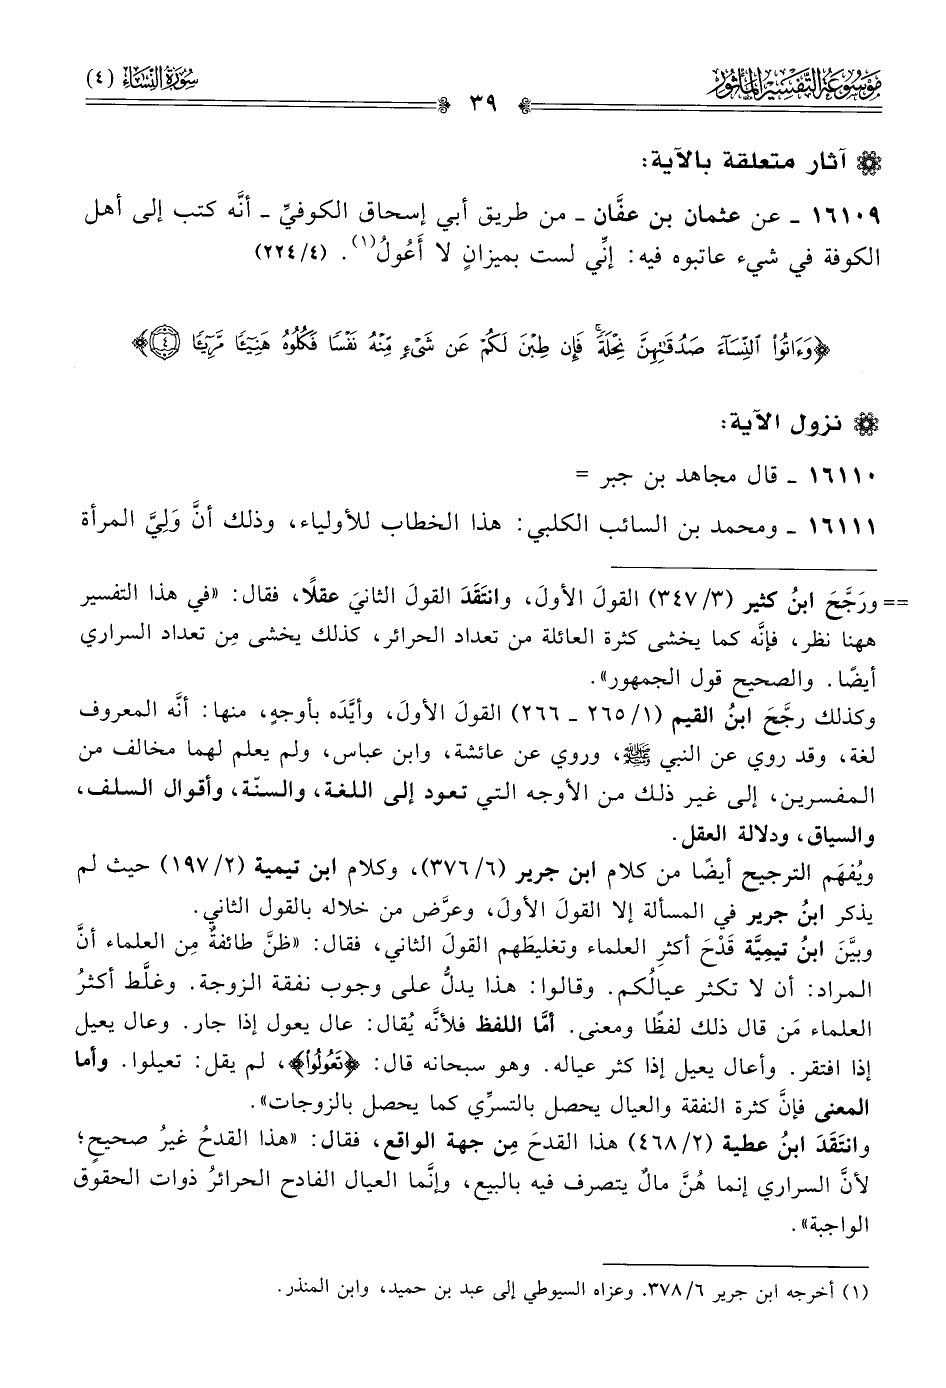 مَوْسُوعَة التَّفْسِيْر المَأْثُور
سُورَةُ النِّسَاء (٤)
٣٩
آثار متعلقة بالآية:
١٦١٠٩ ـ عن عثمان بن عفَّان ـ من طريق أبي إسحاق الكوفيِّ ـ أنَّه كتب إلى أهل
الكوفة في شيء عاتبوه فيه: إنِّي لست بميزانٍ لا أَعُولُ(١). (٢٢٤/٤)
﴿وَءَاتُوا۟ ٱلنِّسَآءَ صَدُقَٰتِهِنَّ نِحْلَةً ۚ فَإِن طِبْنَ لَكُمْ عَن شَىْءٍ مِّنْهُ نَفْسًا فَكُلُوهُ هَنِيٓـًٔا مَّرِيٓـًٔا ٤﴾
نزول الآية:
١٦١١٠ ـ قال مجاهد بن جبر =
١٦١١١ ـ ومحمد بن السائب الكلبي: هذا الخطاب للأولياء، وذلك أنَّ وَلِيَّ المرأة
== ورَجَّحَ ابنُ كثير (٣٤٧/٣) القولَ الأولَ، وانتَقَدَ القولَ الثانيَ عقلًا، فقال: «في هذا التفسير
ههنا نظر، فإنَّه كما يخشى كثرة العائلة من تعداد الحرائر، كذلك يخشى مِن تعداد السراري
أيضًا. والصحيح قول الجمهور».
وكذلك رجَّحَ ابنُ القيم (٢٦٥/١ ـ ٢٦٦) القولَ الأولَ، وأيَّدَه بأوجهٍ، منها: أنَّه المعروف
لغة، وقد روي عن النبي ﷺ، وروي عن عائشة، وابن عباس، ولم يعلم لهما مخالف من
المفسرين، إلى غير ذلك من الأوجه التي تعود إلى اللغة، والسنّة، وأقوال السلف،
والسياق، ودلالة العقل.
ويُفهَم الترجيح أيضًا من كلام ابن جرير (٣٧٦/٦)، وكلام ابن تيمية (١٩٧/٢) حيث لم
يذكر ابنُ جرير في المسألة إلا القولَ الأولَ، وعرَّض من خلاله بالقول الثاني.
وبيَّنَ ابنُ تيميَّة قَدْحَ أكثرِ العلماء وتغليطَهم القولَ الثاني، فقال: «ظنَّ طائفةٌ مِن العلماء أنَّ
المراد: أن لا تكثر عيالُكم. وقالوا: هذا يدلُّ على وجوب نفقة الزوجة. وغلَّط أكثرُ
العلماء مَن قال ذلك لفظًا ومعنى. أمَّا اللفظ فلأنَّه يُقال: عال يعول إذا جار. وعال يعيل
إذا افتقر. وأعال يعيل إذا كثر عياله. وهو سبحانه قال: ﴿تَعُولُوا۟﴾، لم يقل: تعيلوا. وأما
المعنى فإنَّ كثرة النفقة والعيال يحصل بالتسرِّي كما يحصل بالزوجات».
وانتَقَدَ ابنُ عطية (٤٦٨/٢) هذا القدحَ مِن جهة الواقع، فقال: «هذا القدحُ غيرُ صحيحٍ؛
لأنَّ السراري إنما هُنَّ مالٌ يتصرف فيه بالبيع، وإنَّما العيال الفادح الحرائرُ ذوات الحقوق
الواجبة».
(١) أخرجه ابن جرير ٣٧٨/٦. وعزاه السيوطي إلى عبد بن حميد، وابن المنذر.